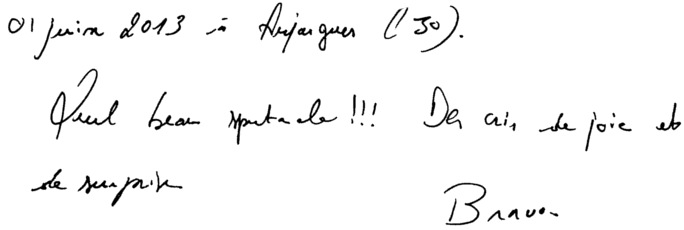 01 juin 2013 à Aujargues (30).
Quel beau spectacle !!! Des cris de joie et
de surprise
Bravo.